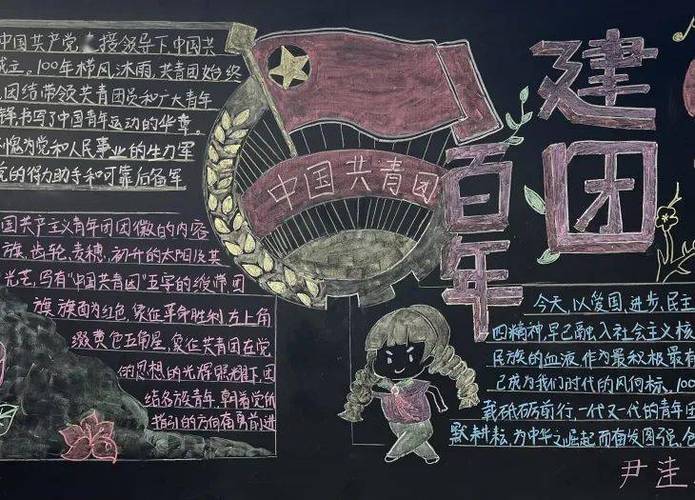 中国共产党直接领导下,中国共
成立。100年栉风沐雨,共青团始终
团结带领共青团员和广大青年
锋书写了中国青年运动的华章。
愧为党和人民事业的生力军
党的得力助手和可靠后备军
中国共青团
建团
百年
国共产主义青年团团徽的内容
旗、齿轮、麦穗、初升的太阳及其
光芒,写有“中国共青团”五字的绶带团
旗旗面为红色,象征革命胜利左上角
缀黄色五角星,象征共青团在党
的思想的光辉照耀下,团
结各族青年,朝着党所
指引的方向奋勇前进
今天,以爱国、进步、民主
四精神,早已融入社会主义核
民族的血液,作为最积极最有
已成为我们时代的风向标。100
载砥砺前行,一代又一代的青年
默耕耘,为中华之崛起而奋发图强,
尹